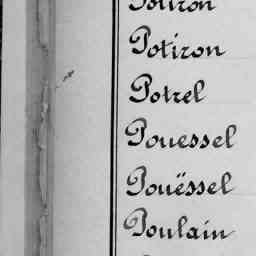 Potiron
Potiron
Potrel
Pouessel
Pouëssel
Poulain